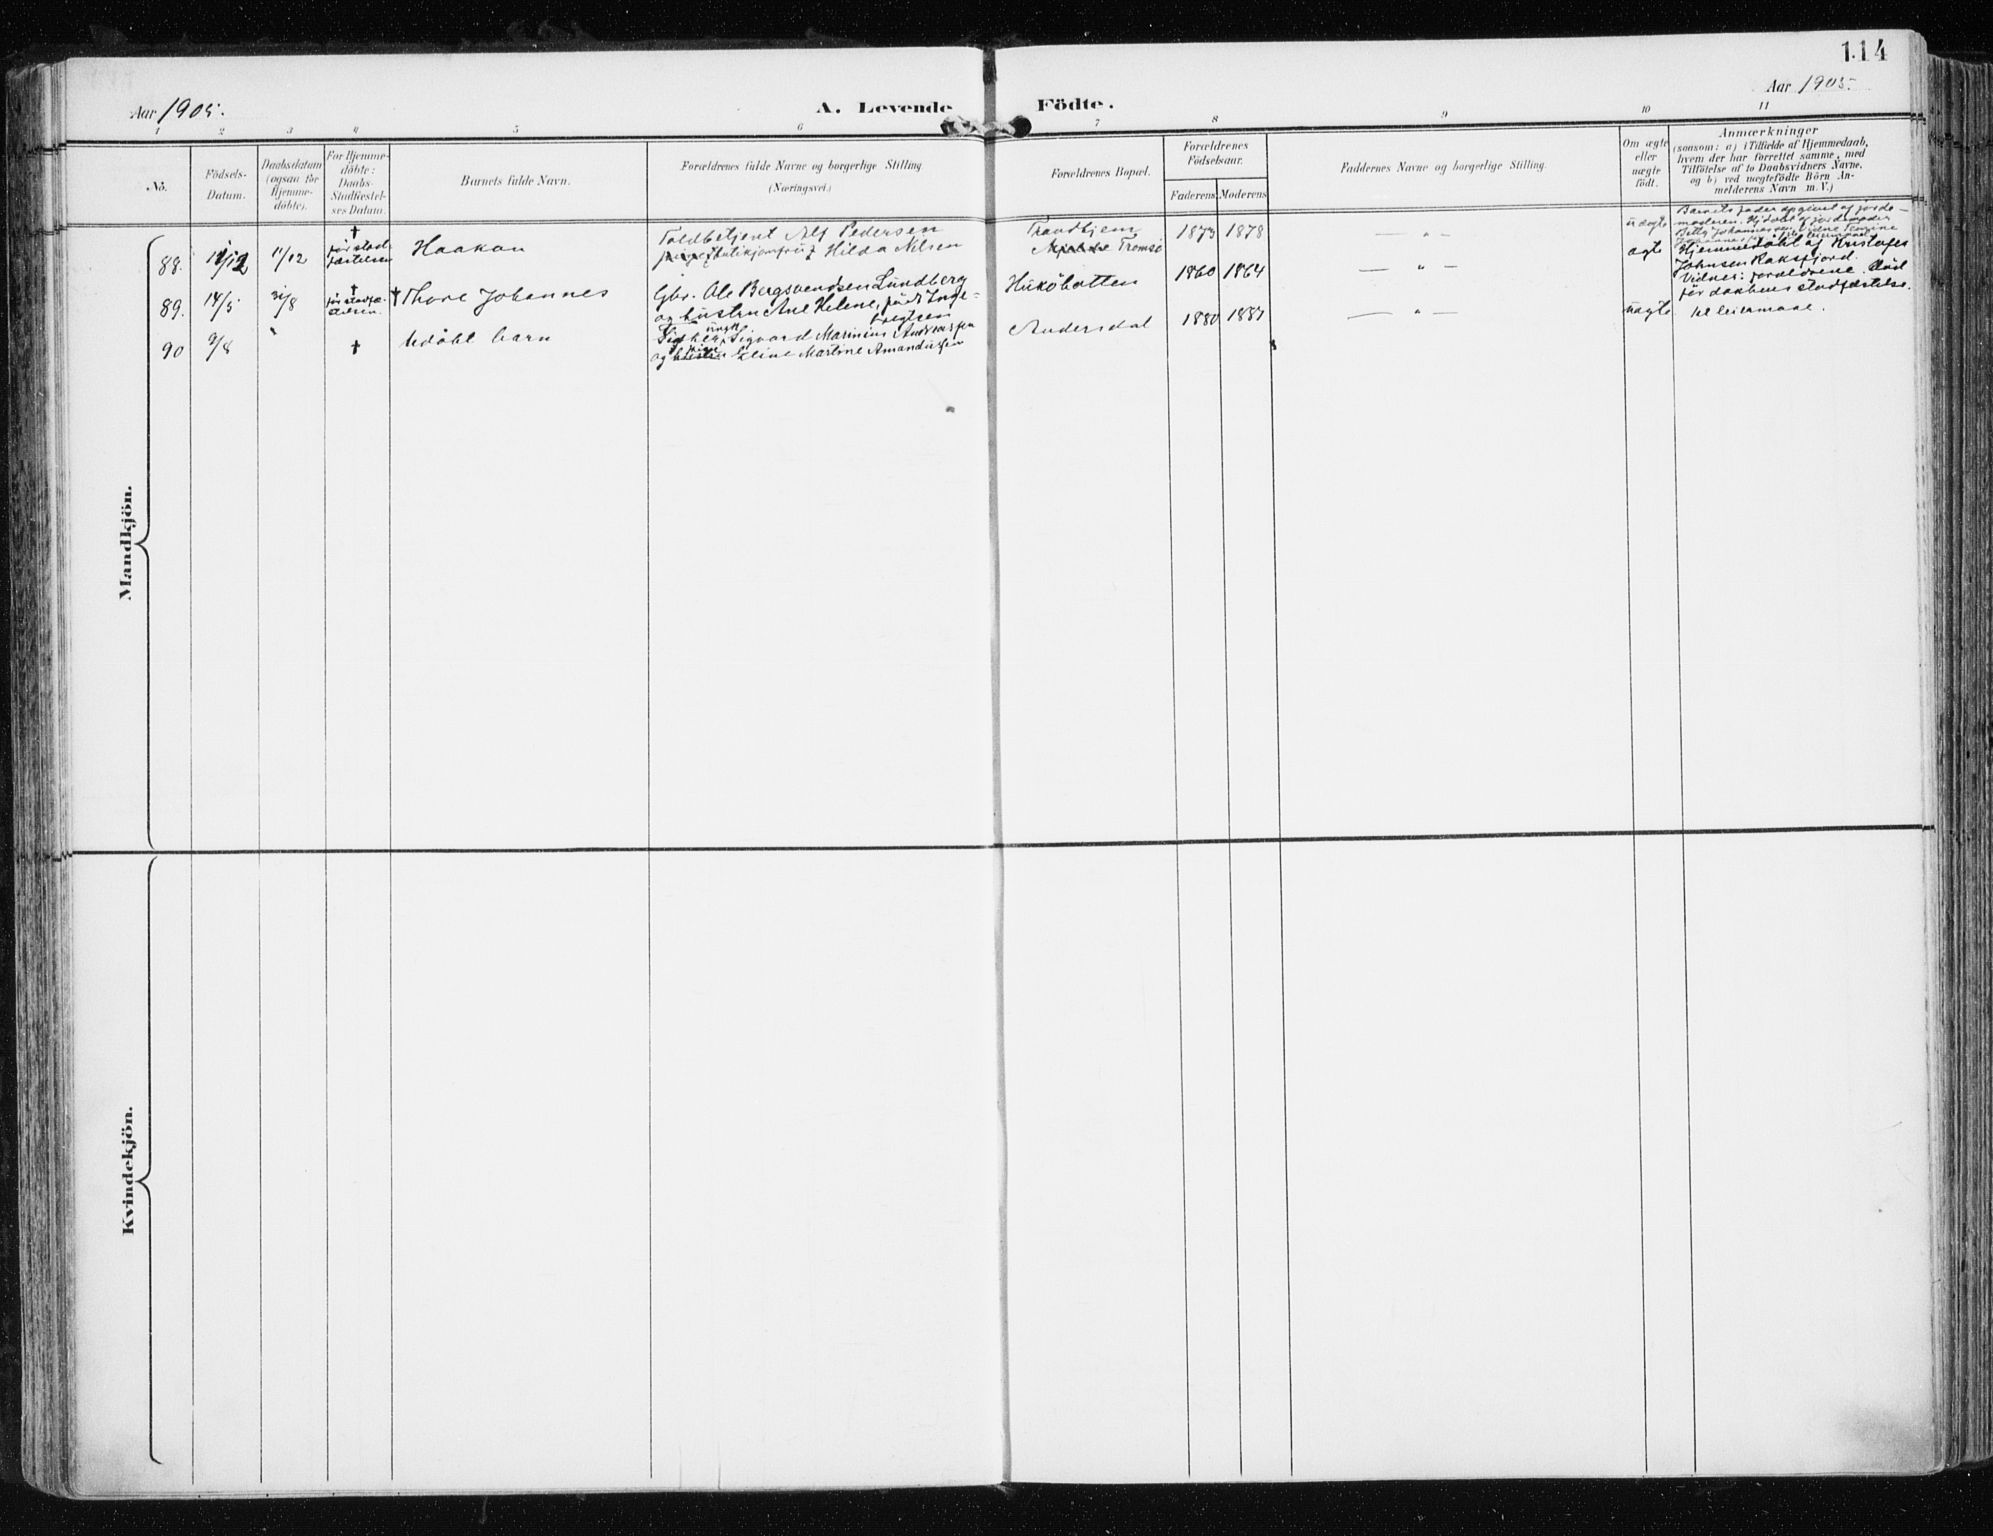 114
Aar 1905.
A. Levende Födte.
Aar 1905.
1 2 3 4 5 6 7 8 9 10 11
No.
Födsels-
Datum.
Daabsdatum
(ogsaa for
Hjemme-
döbte).
For Hjemme-
döbte:
Daabs-
Stadfæstel-
ses Datum.
Barnets fulde Navn.
Forældrenes fulde Navne og borgerlige Stilling
(Næringsvei.)
Forældrenes Bopæl.
Forældrenes
Födselsaar.
Faderens Moderens
Faddernes Navne og borgerlige Stilling.
Om ægte
eller
uægte
födt.
Anmærkninger
(saasom: a) i Tilfælde af Hjemmedaab,
hvem der har forrettet samme, med
Tilföielse af to Daabsvidners Navne.
og b) ved uægtefödte Börn An-
melderens Navn m. V.)
Mandkjön.
88. 11/12
†
før stad-
fæstelsen
Haakon
Toldbetjent Alf Pedersen
Hilda Nilsen
Trondhjem
Tromsö
1873 1878
— „ —
uægte
Barnets fader opgivet af jorde-
moderen. Hjdøbt af jordemoder
89. 14/5
†
før stadfæ-
stelsen
† Thore Johannes
Gbr. Ole Bergsvendsen Lundberg
og hustru Ane Helene, født Inge-
brigtsen
Hikøbotten
1860 1864
— „ —
ægte
Hjemmedøbt af Kristofer
Johnsen Raksfjord.
Vidner: forældrene. Död
før daabens stadfæstelse.
90 9/8 "
†
Udöbt barn
ungk
Sigvard Marinius Andreassen
og Eline Martine Amandussen
Andersdal
1880 1887
— „ —
uægte
1ste leiermaal.
Kvindekjön.